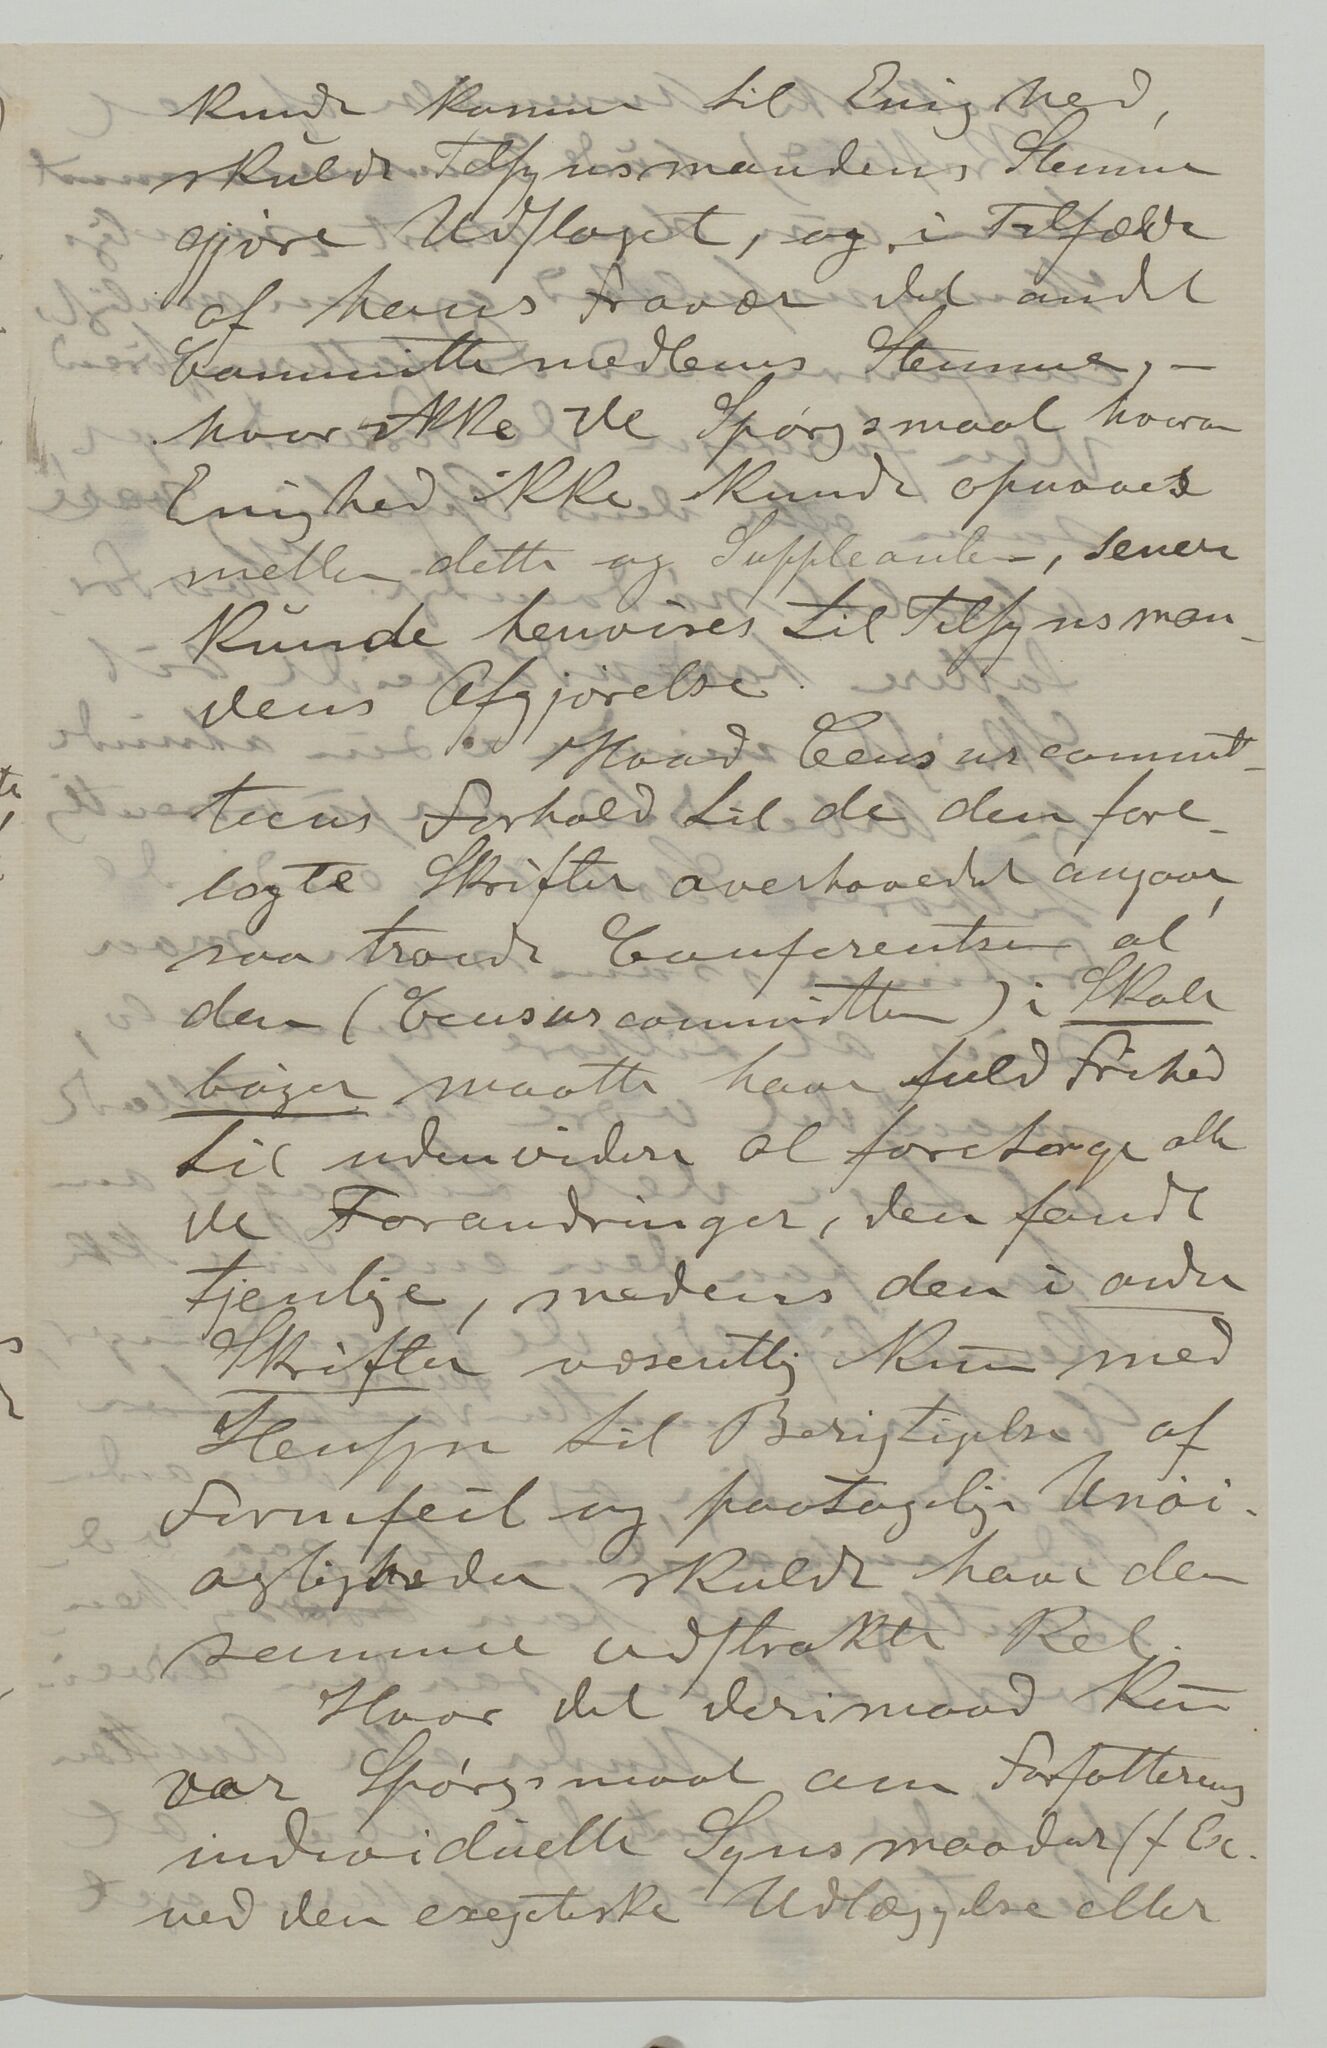 kunde komme til Enighed,
skulde Tilsynsmandens Stemme
gjøre Udslaget, og i Tilfælde
af hans Fravær det andet
Committemedlems Stemme, –
hvor ikke de Spørgsmaal hvorom
Enighed ikke kunde opnaaes
mellem dette og Suppleanten, senere
kunde henvises til Tilsynsman-
dens Afgjørelse.
Hvad Censurcommit-
teens Forhold til de den fore-
lagte Skrifter overhovedet angaar,
saa troede Conferentsen at
den (Censurcommitteen) i Skole
bøger maatte have fuld Frihed
til uden videre at foretage alle
de Forandringer, den fandt
tjenlige, medens den i andre
Skrifter væsentlig kun med
Hensyn til Berigtigelse af
Formfeil og paatagelige Unøi-
agtigheder skulde have den
samme udstrakte Ret.
Hvor det derimod kun
var Spørgsmaal om Forfatterens
individuelle Synsmaader (f Ex.
ved den exegetiske Udlæggelse eller